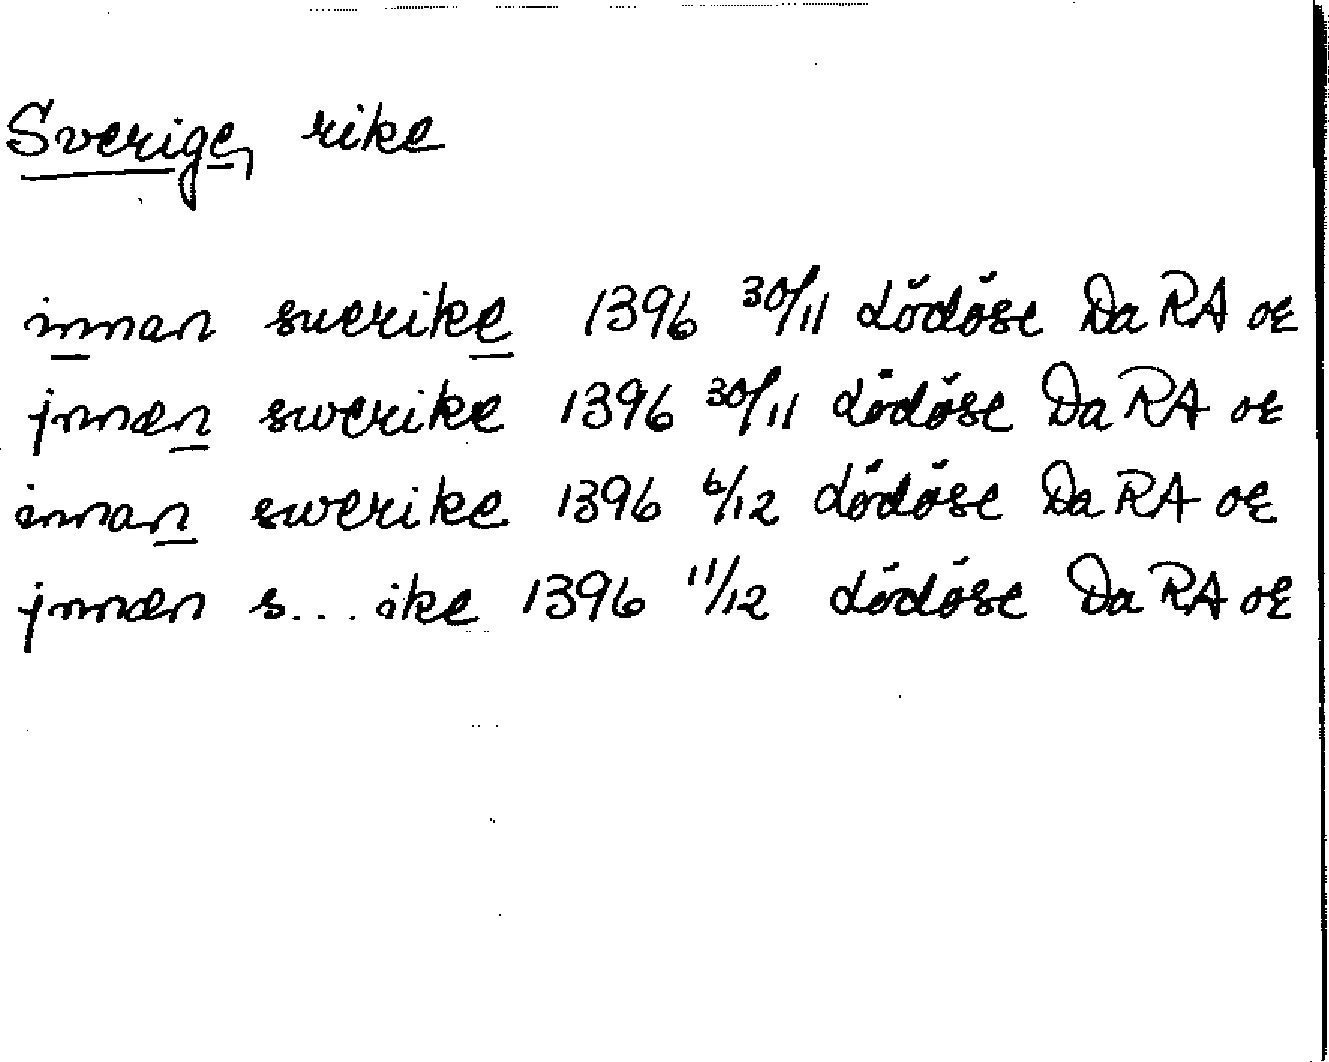 Sverige, rike
innan suerike 1396 30/11 Lödöse Da RA or
jnnæn swerike 1396 30/11 Lödöse Da RA or
innan swerike 1396 6/12 Lödöse Da RA or
jnnæn s... ike 1396 11/12 Lödöse Da RA or